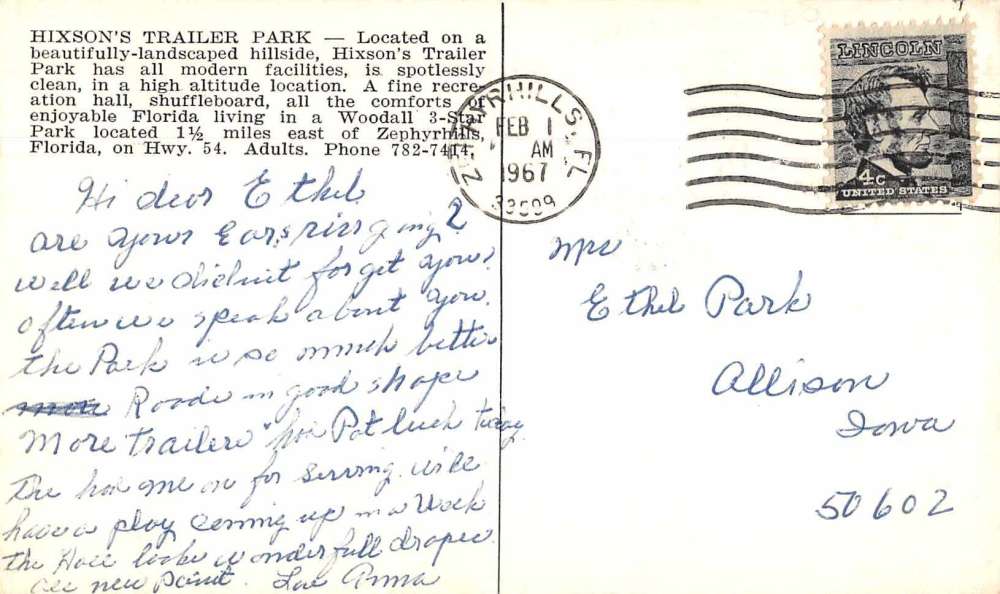 HIXSON'S TRAILER PARK — Located on a
beautifully-landscaped hillside, Hixson's Trailer
Park has all modern facilities, is spotlessly
clean, in a high altitude location. A fine recre-
ation hall, shuffleboard, all the comforts of
enjoyable Florida living in a Woodall 3-Star
Park located 1½ miles east of Zephyrhills,
Florida, on Hwy. 54. Adults. Phone 782-7414.
ZEPHYRHILLS, FL
FEB 1
AM
1967
33599
LINCOLN
4c
UNITED STATES
Hi dear Ethel
are your Ears ringing?
well we didnit forget you,
often we speak about you.
the Park is so much better
Roads in good shape
More trailers has Pot luck today
The has me on for serving. will
have a play coming up in a Week
the Hall looks wonderfull drapes
all new paint. Love Anna
Mrs
Ethel Park
Allison
Iowa
50602